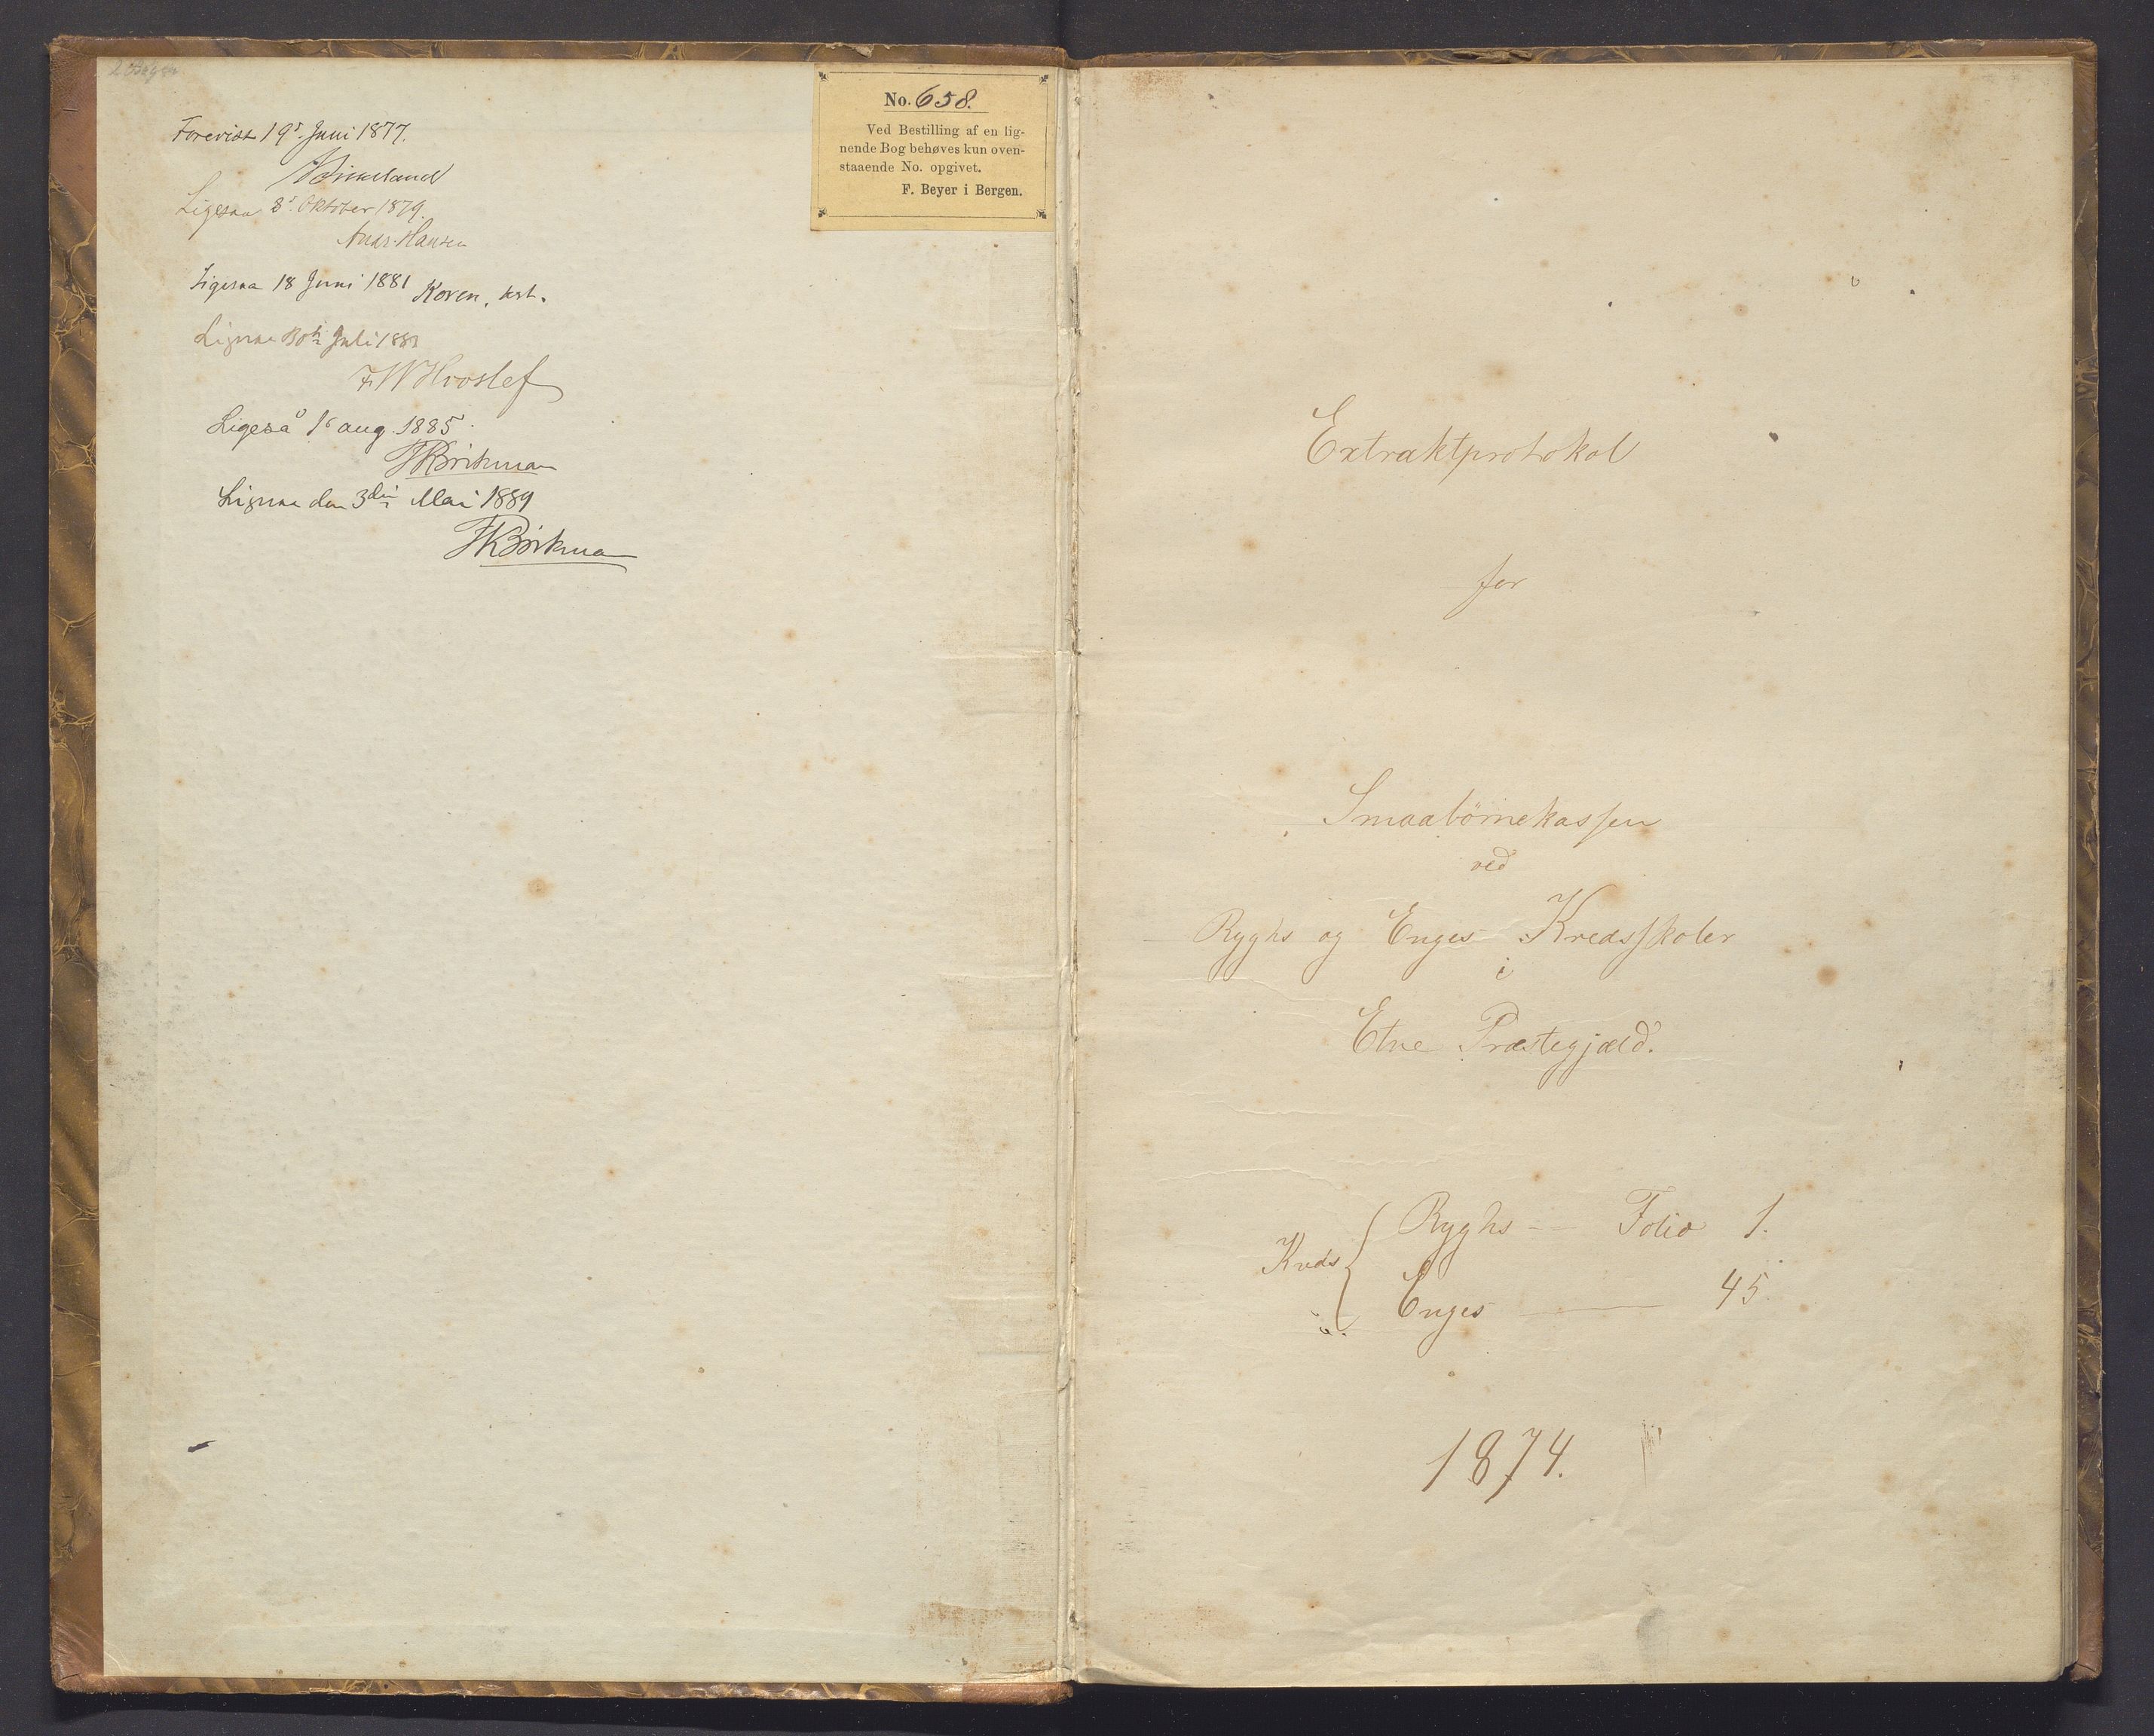 Forevist 19de Juni 1877.
Ligesaa 8de Oktober 1879.
Andr. Hansen
Ligesaa 18 Juni 1881 Koren, kst.
Ligesaa 30te Juli 1883
F W Hvoslef
Ligeså 1s aug. 1885.
Ligesaa den 3die Mai 1889
No. 658.
Ved Bestilling af en lig-
nende Bog behøves kun oven-
staaende No. opgivet.
F. Beyer i Bergen.
Extraktprotokol
for
Smaabørnekassen
ved
Ryghs og Enges Kredsskoler
i
Etne Præstegjæld.
Kreds { Ryghs — Folio 1.
Enges — 45
1874.